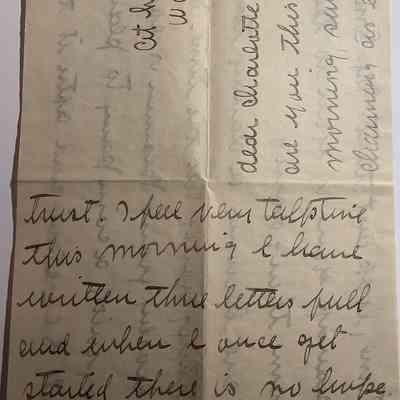 At h
dear Charlotte
are you this
morning, sur
charming as e
trust. I feel very talkative
this morning I have
written three letters full
and when I once get
started there is no hope.